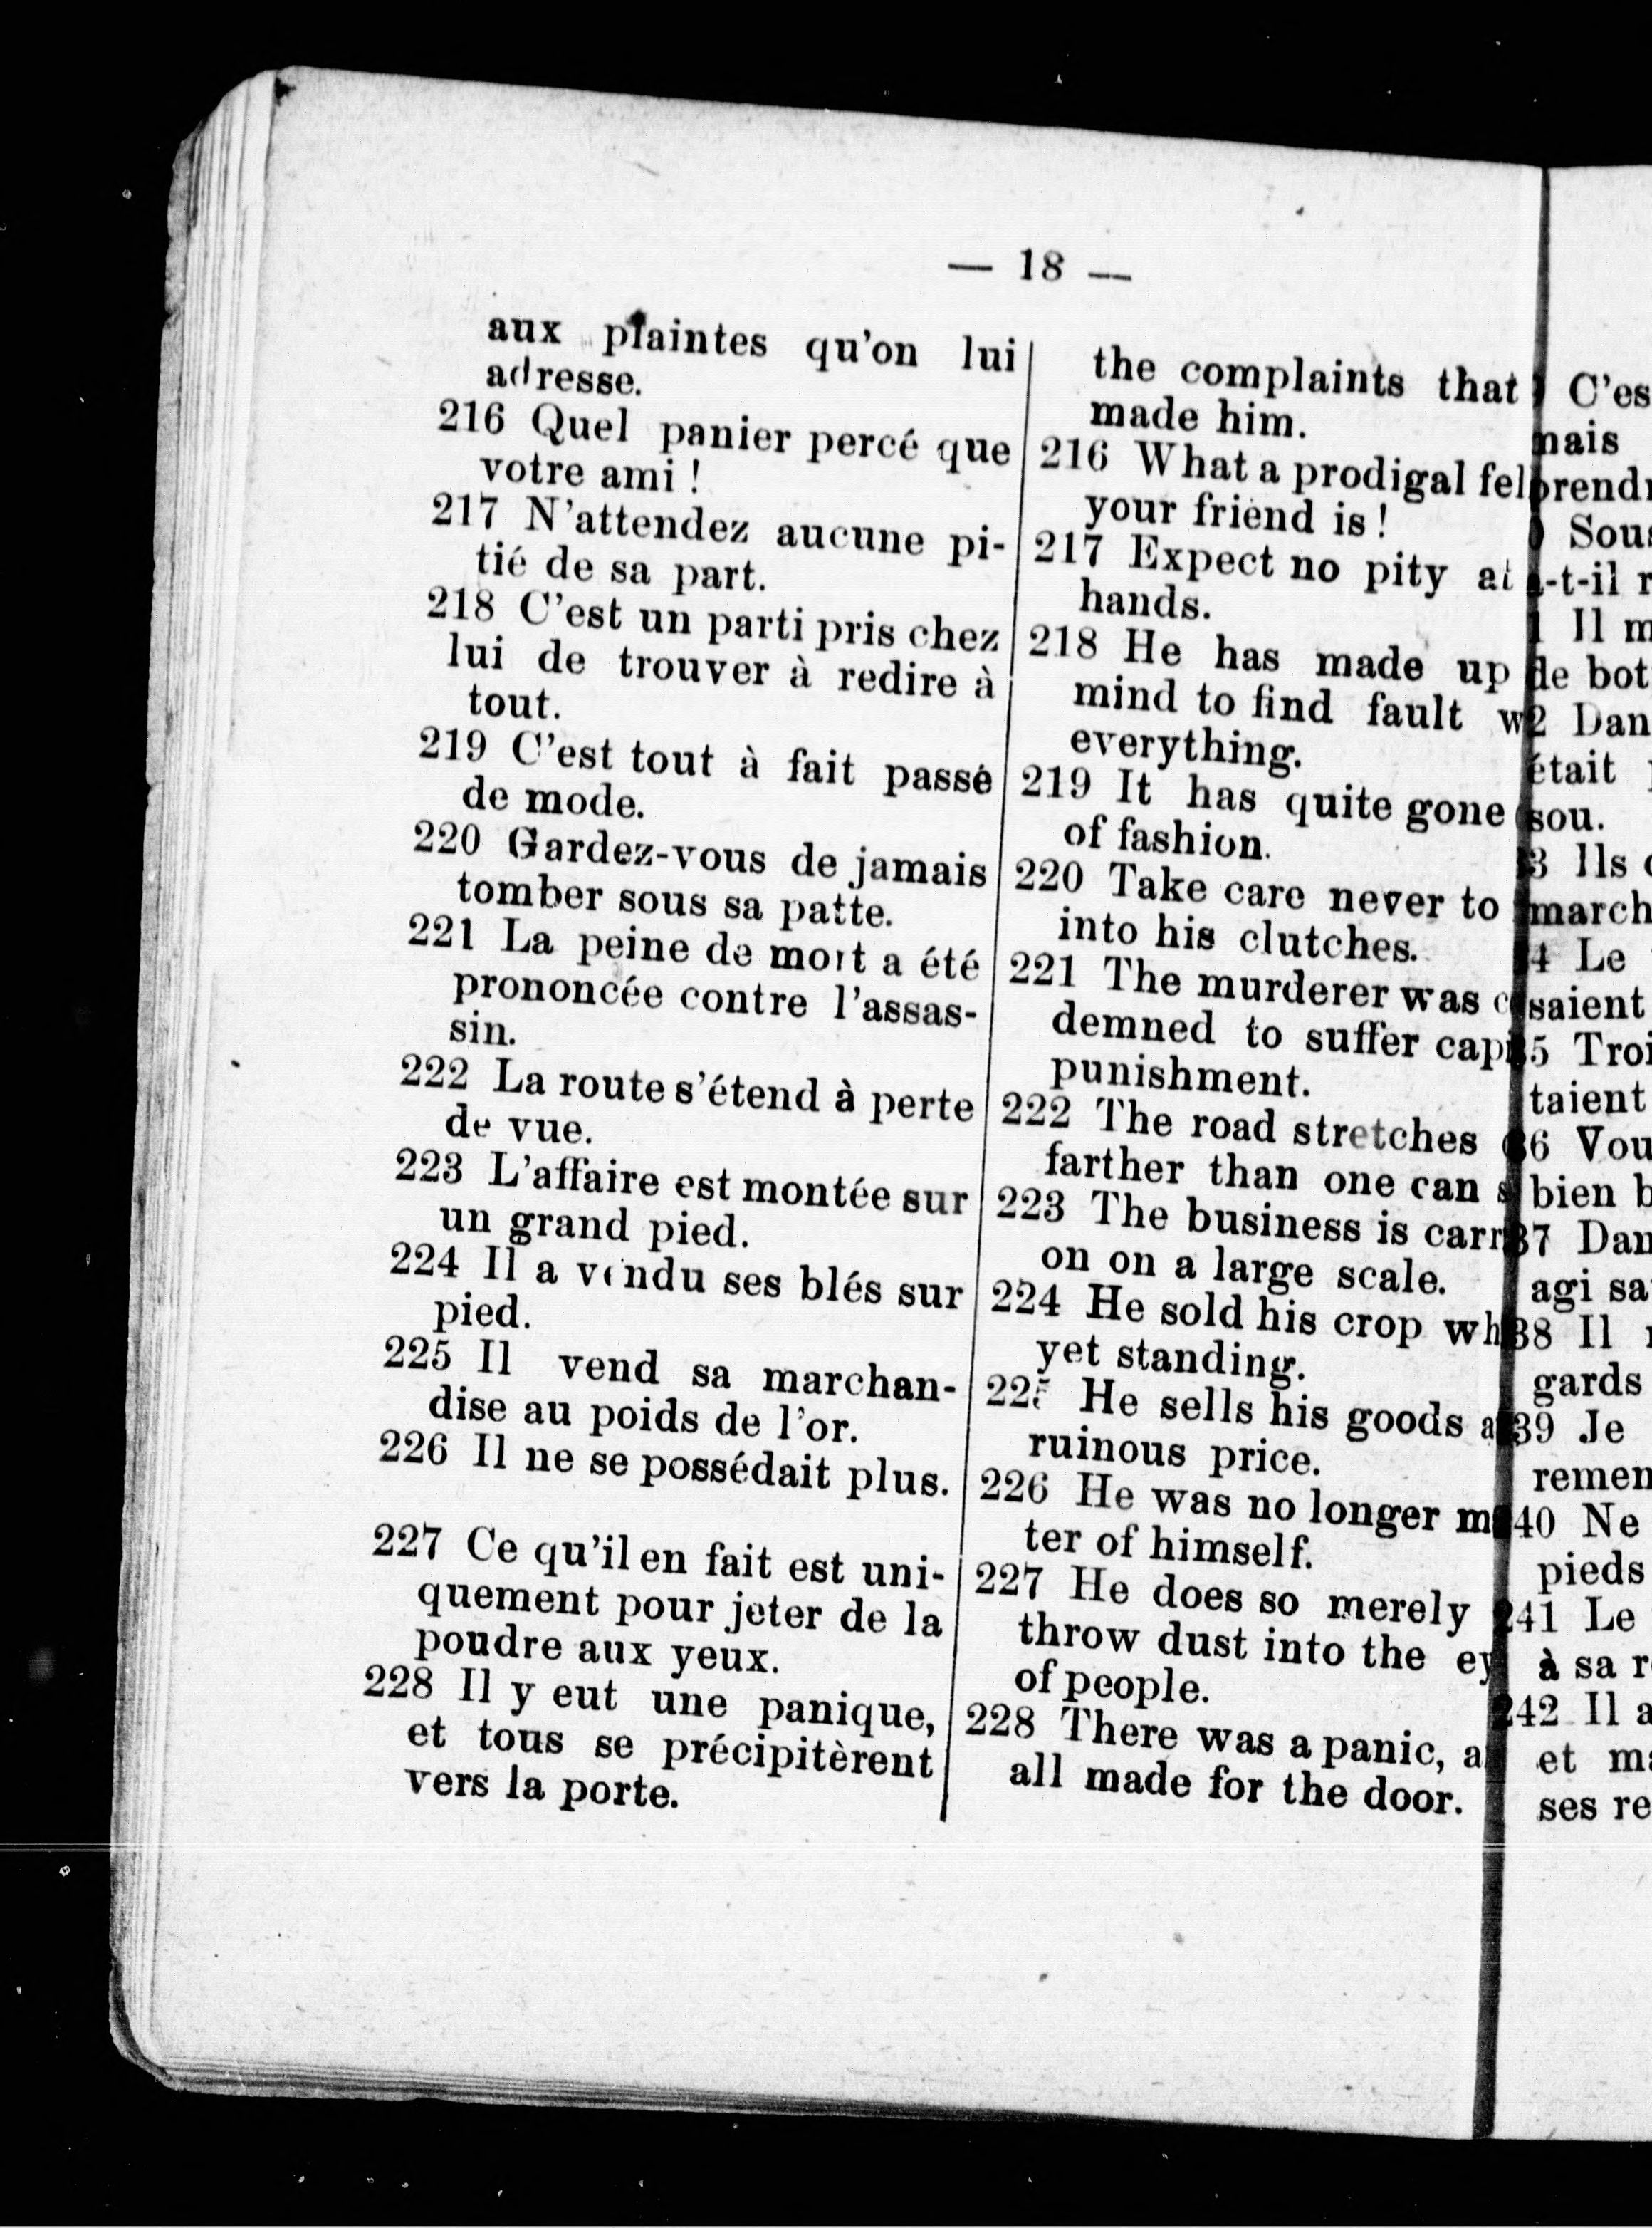 — 18 —
aux plaintes qu'on lui
adresse.
216 Quel panier percé que
votre ami !
217 N'attendez aucune pi-
tié de sa part.
218 C'est un parti pris chez
lui de trouver à redire à
tout.
219 C'est tout à fait passé
de mode.
220 Gardez-vous de jamais
tomber sous sa patte.
221 La peine de mort a été
prononcée contre l'assas-
sin.
222 La route s'étend à perte
de vue.
223 L'affaire est montée sur
un grand pied.
224 Il a vendu ses blés sur
pied.
225 Il vend sa marchan-
dise au poids de l'or.
226 Il ne se possédait plus.
227 Ce qu'il en fait est uni-
quement pour jeter de la
poudre aux yeux.
228 Il y eut une panique,
et tous se précipitèrent
vers la porte.
the complaints that
made him.
216 What a prodigal fel
your friend is !
217 Expect no pity at
hands.
218 He has made up
mind to find fault w
everything.
219 It has quite gone
of fashion.
220 Take care never to
into his clutches.
221 The murderer was c
demned to suffer cap
punishment.
222 The road stretches
farther than one can s
223 The business is carr
on on a large scale.
224 He sold his crop wh
yet standing.
225 He sells his goods a
ruinous price.
226 He was no longer m
ter of himself.
227 He does so merely
throw dust into the ey
of people.
228 There was a panic, a
all made for the door.
C'es
mais
prend
Sous
-t-il
Il m
de bot
2 Dan
était
sou.
3 Ils
march
4 Le
saient
5 Troi
taient
6 Vou
bien b
37 Dan
agi sa
38 Il
gards
39 Je
remen
40 Ne
pieds
241 Le
à sa r
242 Il a
et ma
ses re